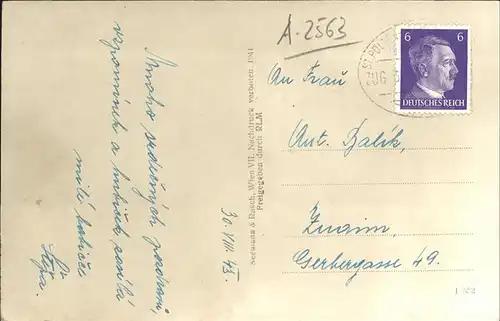 A-2563
ST. PÖL
ZUG
6 6
DEUTSCHES REICH
An Frau
Ant. Balík,
Znaim,
Gerbergasse 49.
Mnoho srdečných pozdravů,
vzpomínek a hubiček zasílá
milé babičce
30. VIII. 43.
Seewann & Rasch, Wien VII. Nachdruck verboten. 1941
Freigegeben durch RLM